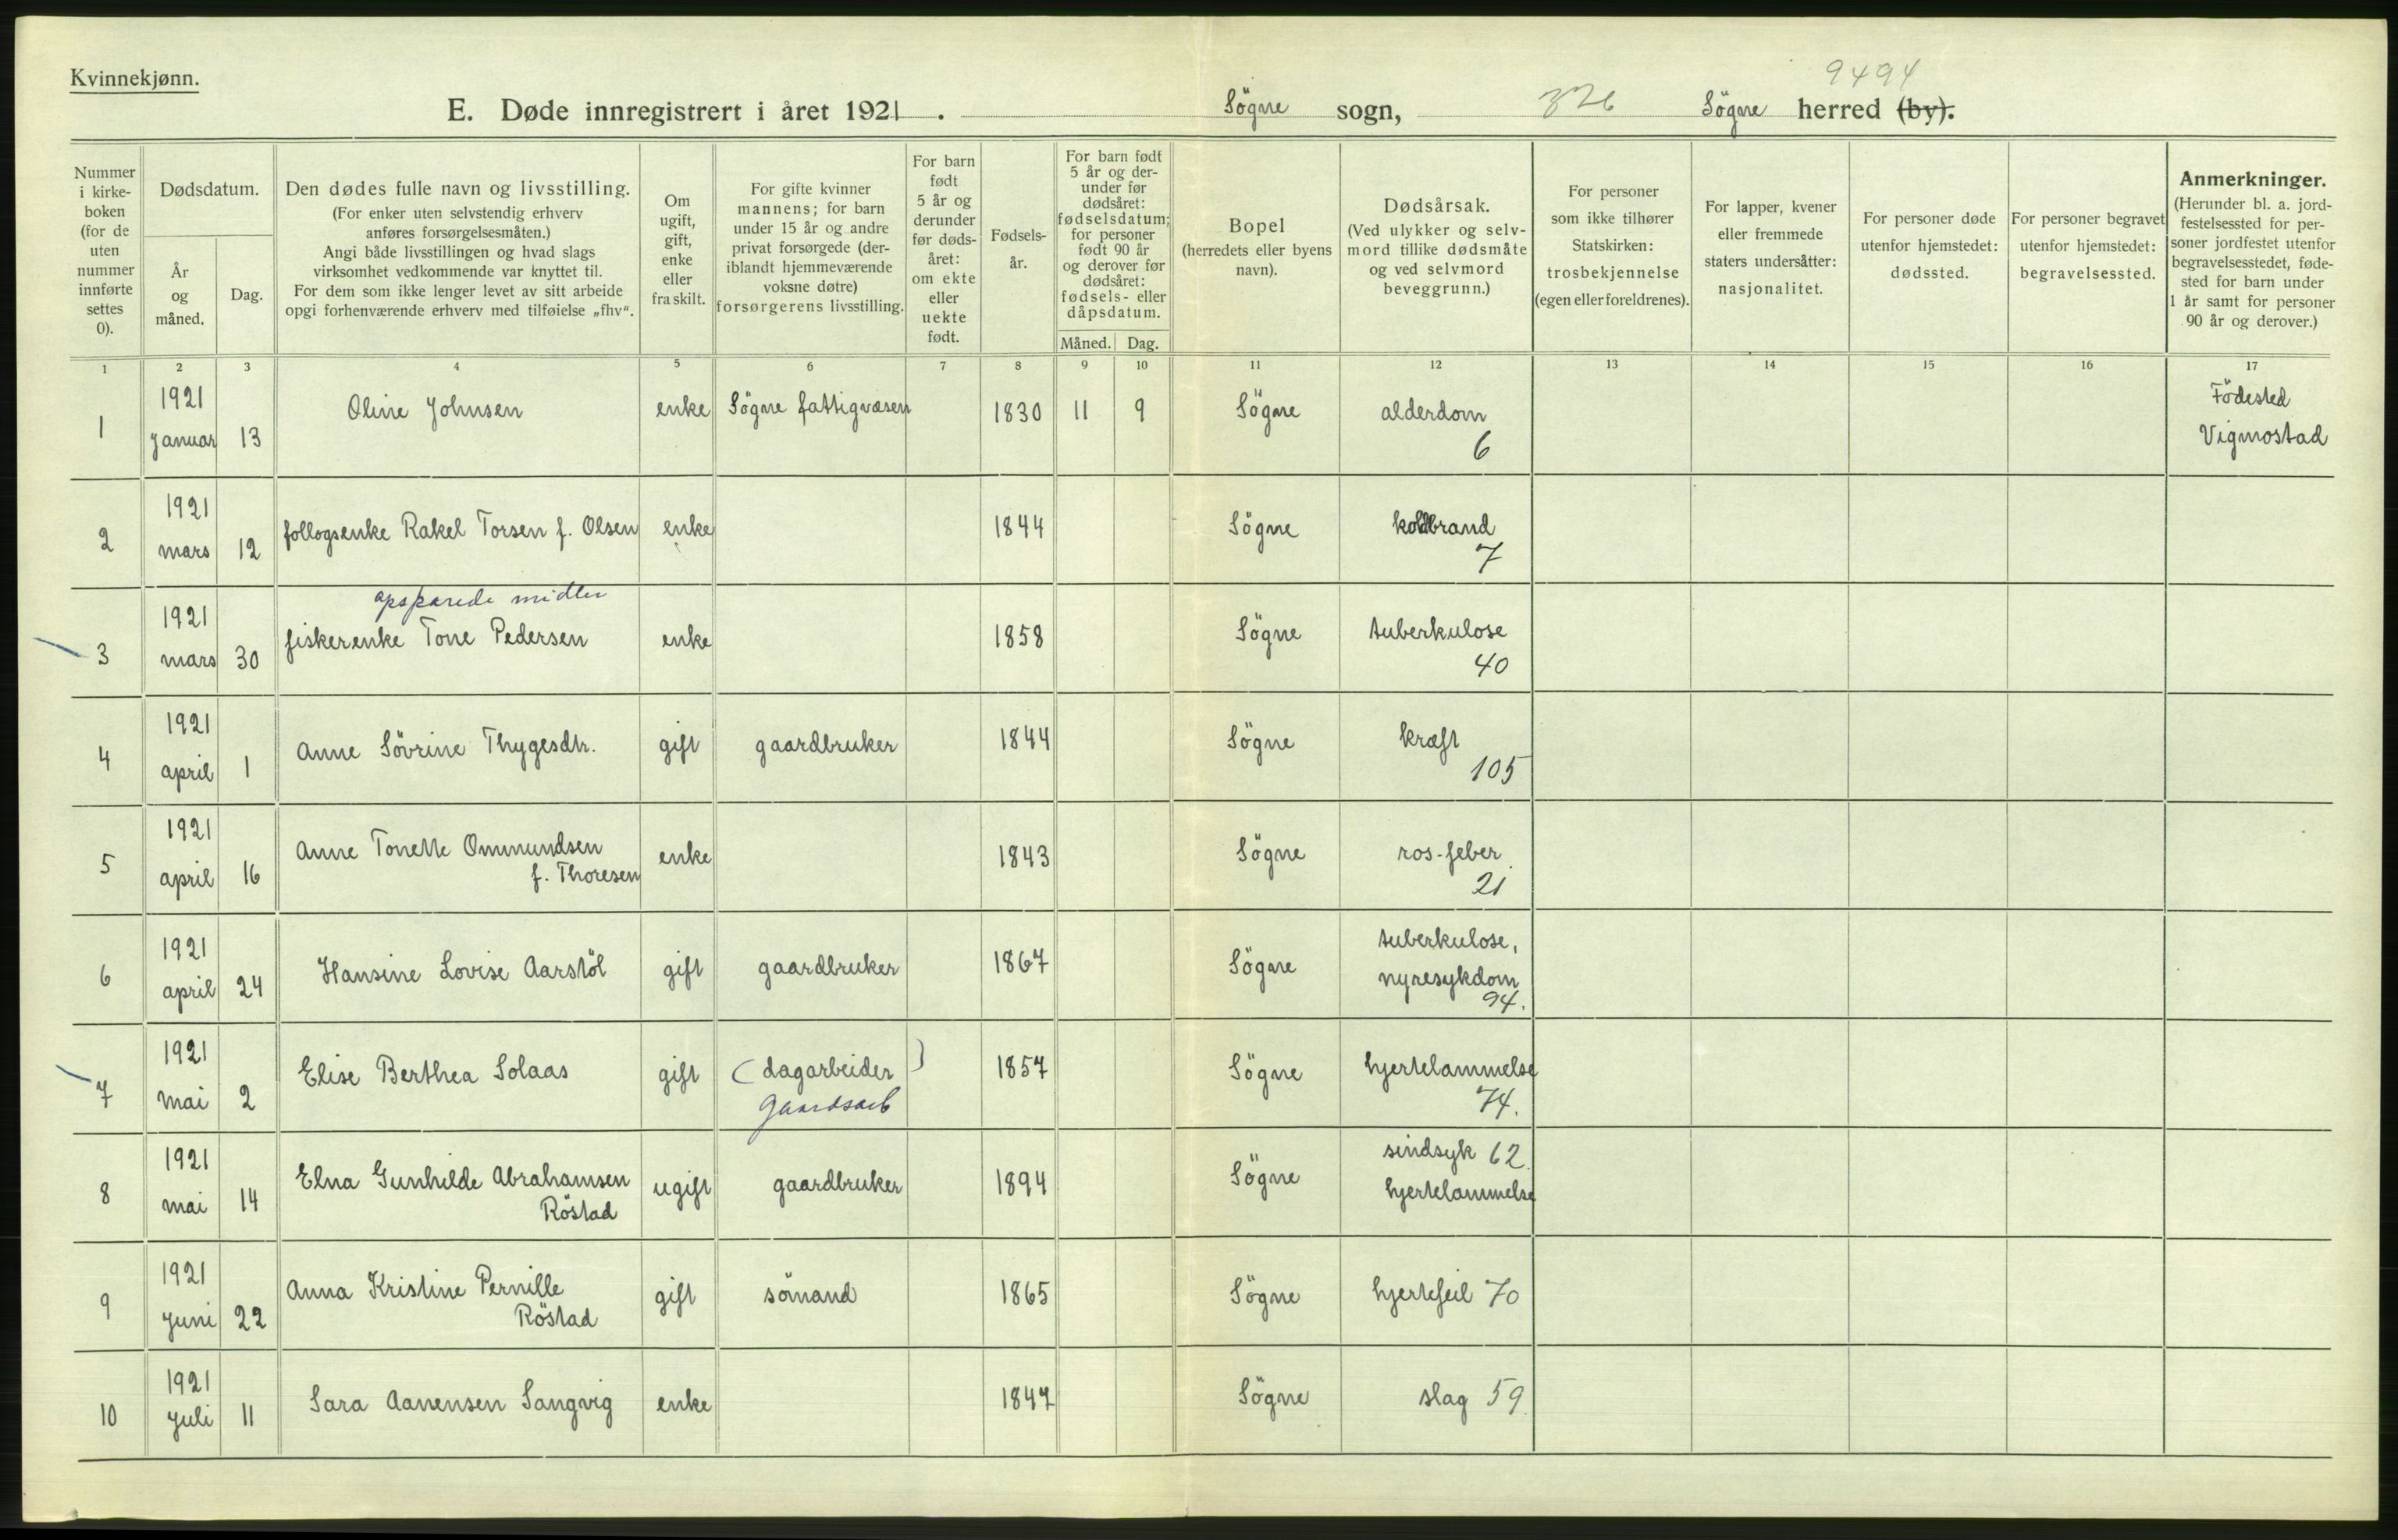 Kvinnekjønn.
9494
E. Døde innregistrert i året 1921. Sögne sogn, 326 Sögne herred (by).
Nummer i kirke-boken (for de uten nummer innførte settes 0).
Dødsdatum.
År og måned.
Dag.
Den dødes fulle navn og livsstilling.
(For enker uten selvstendig erhverv anføres forsørgelsesmåten.)
Angi både livsstillingen og hvad slags virksomhet vedkommende var knyttet til.
For dem som ikke lenger levet av sitt arbeide opgi forhenværende erhverv med tilføielse „fhv“.
Om ugift, gift, enke eller fraskilt.
For gifte kvinner mannens; for barn under 15 år og andre privat forsørgede (der-iblandt hjemmeværende voksne døtre) forsørgerens livsstilling.
For barn født 5 år og derunder før døds-året: om ekte eller uekte født.
Fødsels-år.
For barn født 5 år og der-under før dødsåret: fødselsdatum; for personer født 90 år og derover før dødsåret: fødsels- eller dåpsdatum.
Måned. Dag.
Bopel (herredets eller byens navn).
Dødsårsak. (Ved ulykker og selv-mord tillike dødsmåte og ved selvmord beveggrunn.)
For personer som ikke tilhører Statskirken: trosbekjennelse (egen eller foreldrenes).
For lapper, kvener eller fremmede staters undersåtter: nasjonalitet.
For personer døde utenfor hjemstedet: dødssted.
For personer begravet utenfor hjemstedet: begravelsessted.
Anmerkninger. (Herunder bl. a. jord-festelsessted for per-soner jordfestet utenfor begravelsesstedet, føde-sted for barn under 1 år samt for personer 90 år og derover.)
1 2 3 4 5 6 7 8 9 10 11 12 13 14 15 16 17
1 1921 januar 13 Oline Johnsen enke Sögne fattigvæsen 1830 11 9 Sögne alderdom 6 Födested Vigmostad
2 1921 mars 12 follogsenke Rakel Torsen f. Olsen enke 1844 Sögne koldbrand 7
opsparede midler
3 1921 mars 30 fiskerenke Tone Pedersen enke 1858 Sögne tuberkulose 40
4 1921 april 1 Anne Sövrine Thygesdtr. gift gaardbruker 1844 Sögne kræft 105
5 1921 april 16 Anne Tonette Ommundsen f. Thoresen enke 1843 Sögne ros-feber 21
6 1921 april 24 Hansine Lovise Aarstöl gift gaardbruker 1867 Sögne tuberkulose, nyresykdom 94.
7 1921 mai 2 Elise Berthea Solaas gift (dagarbeider) gaardsarb 1857 Sögne hjertelammelse 74.
8 1921 mai 14 Elna Gunhilde Abrahamsen Röstad ugift gaardbruker 1894 Sögne sindsyk 62. hjertelammelse
9 1921 juni 22 Anna Kristine Pernille Röstad gift sömand 1865 Sögne hjertefeil 70
10 1921 juli 11 Sara Aanensen Sangvig enke 1847 Sögne slag 59